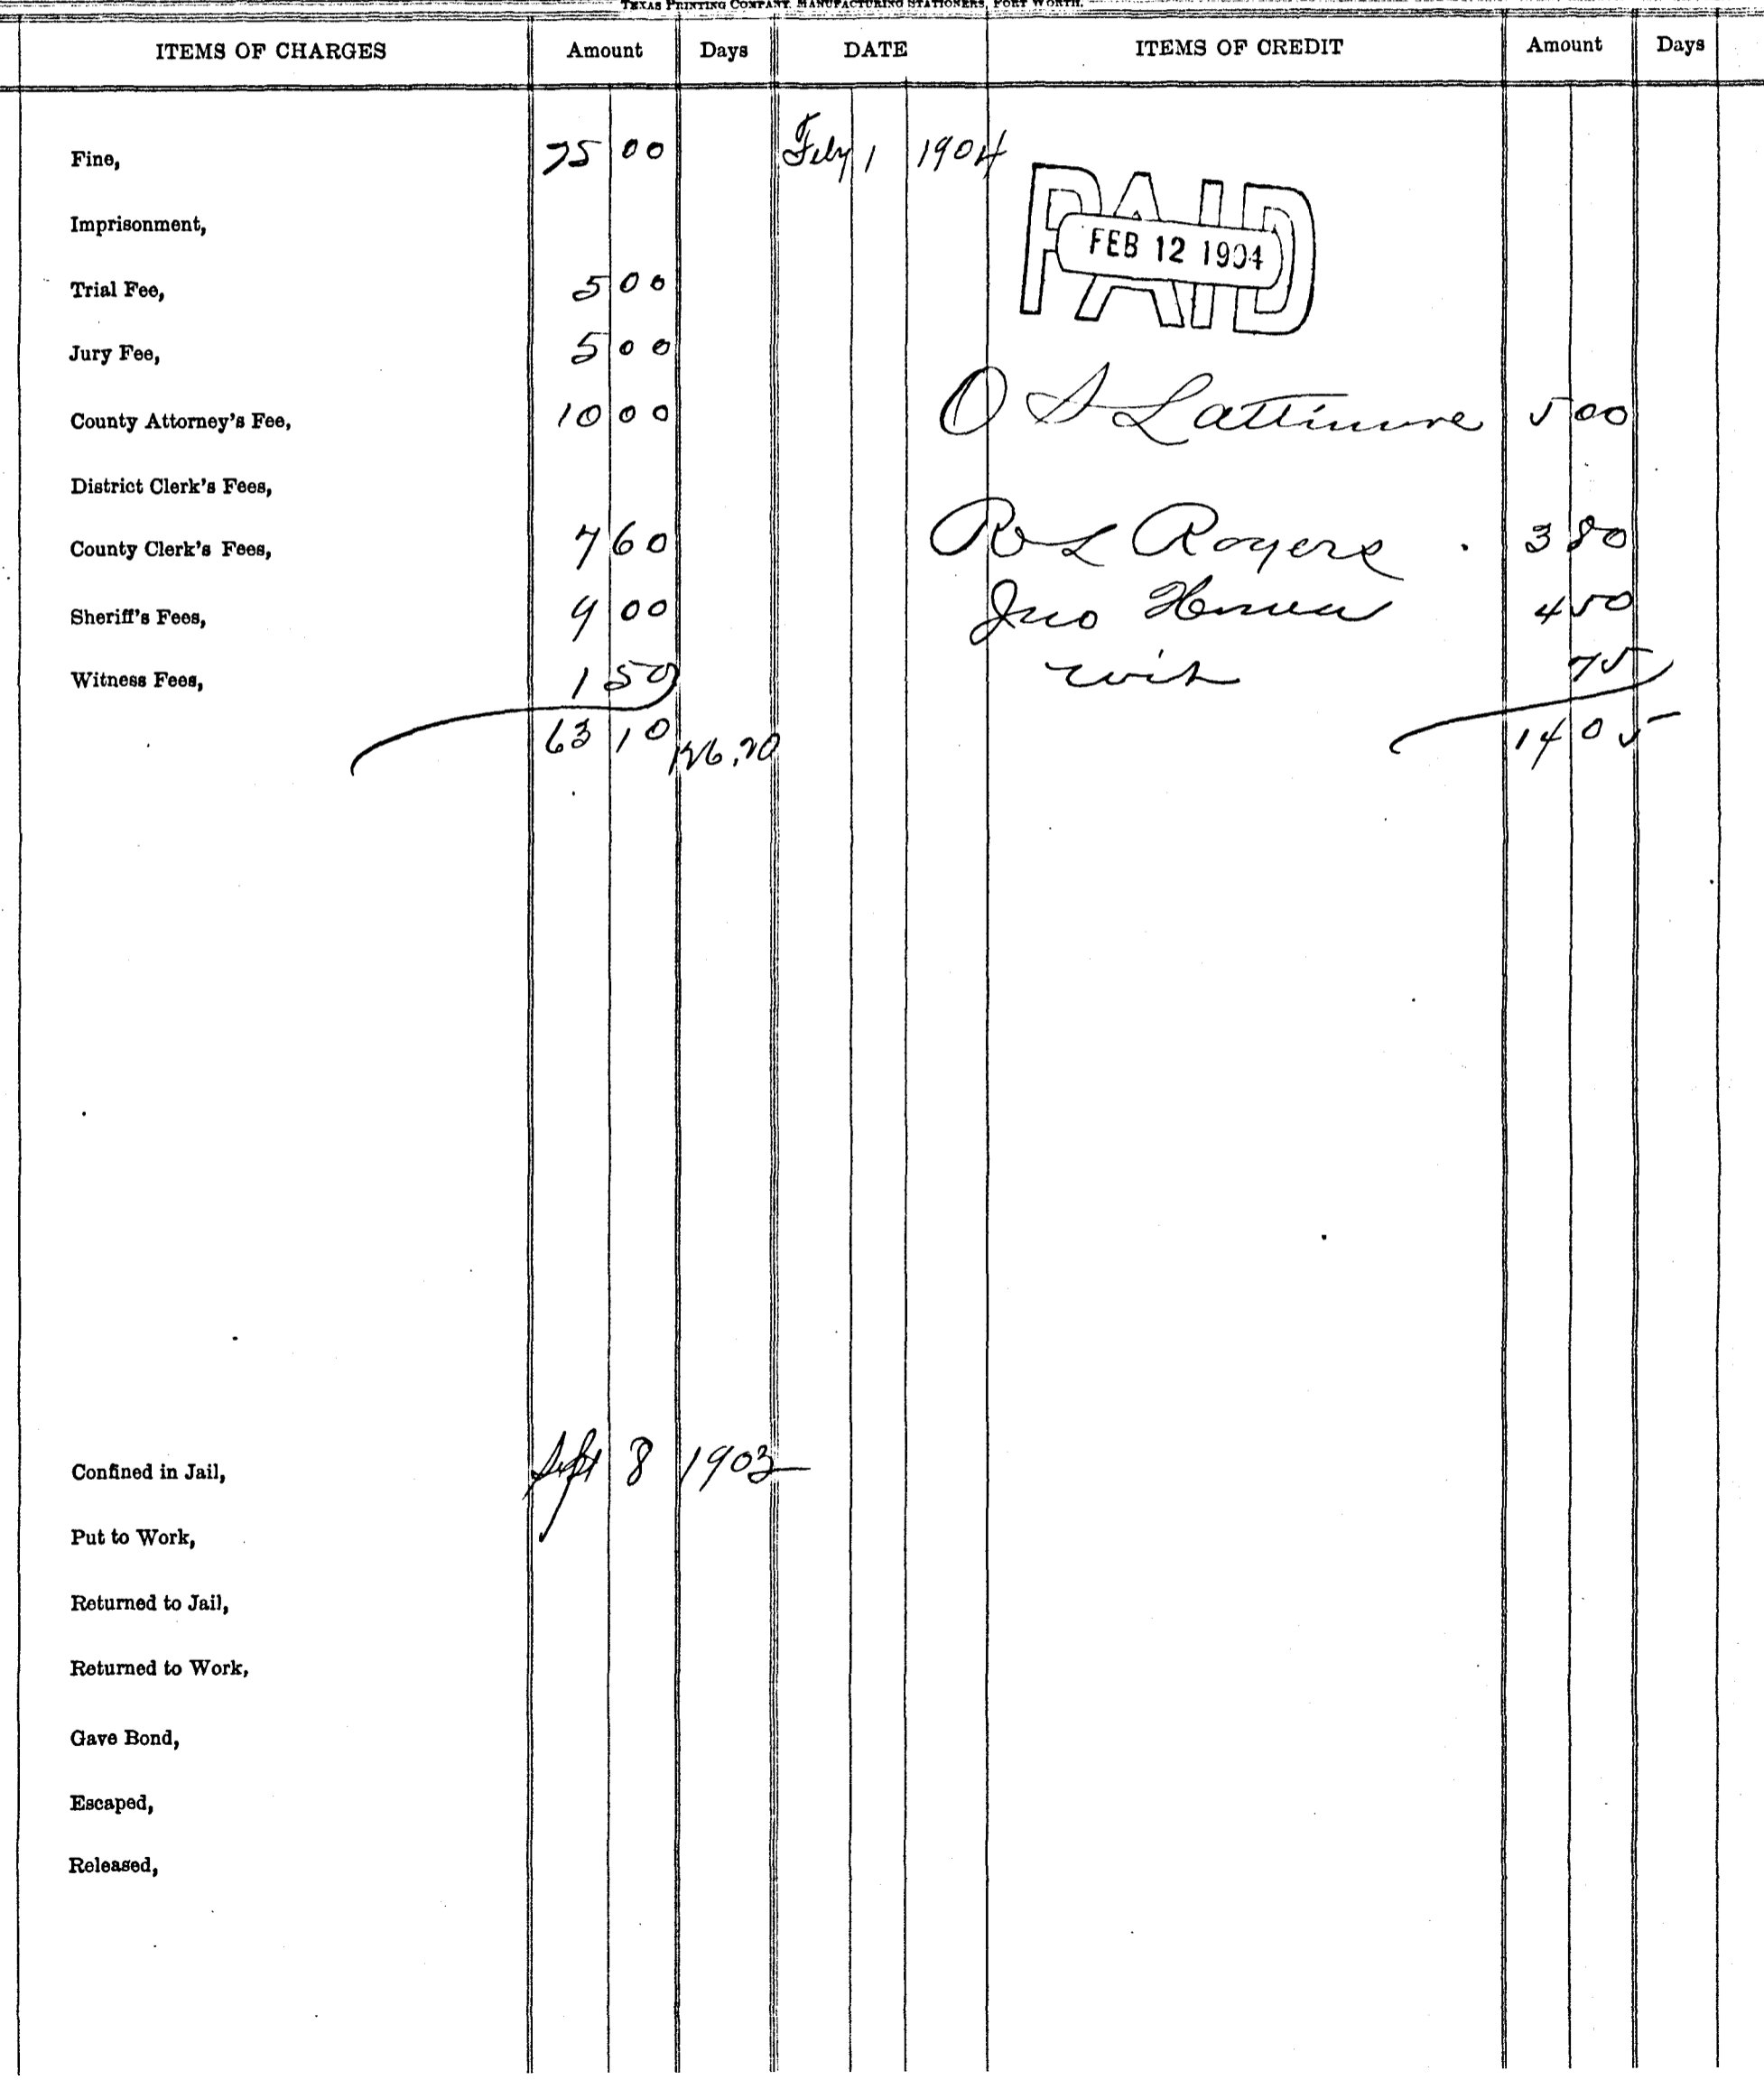 TEXAS PRINTING COMPANY, MANUFACTURING STATIONERS, FORT WORTH.
ITEMS OF CHARGES Amount Days DATE ITEMS OF CREDIT Amount Days
Fine, 75 00 Feby 1 1904
PAID
FEB 12 1904
Imprisonment,
Trial Fee, 5 00
Jury Fee, 5 00
County Attorney's Fee, 10 00 O S Lattimore 5 00
District Clerk's Fees,
County Clerk's Fees, 7 60 R L Rogers 3 80
Sheriff's Fees, 9 00 Jno 4 50
Witness Fees, 1 50 wit 75
63 10 126.20 14 05
Confined in Jail, Sept 8 1903
Put to Work,
Returned to Jail,
Returned to Work,
Gave Bond,
Escaped,
Released,